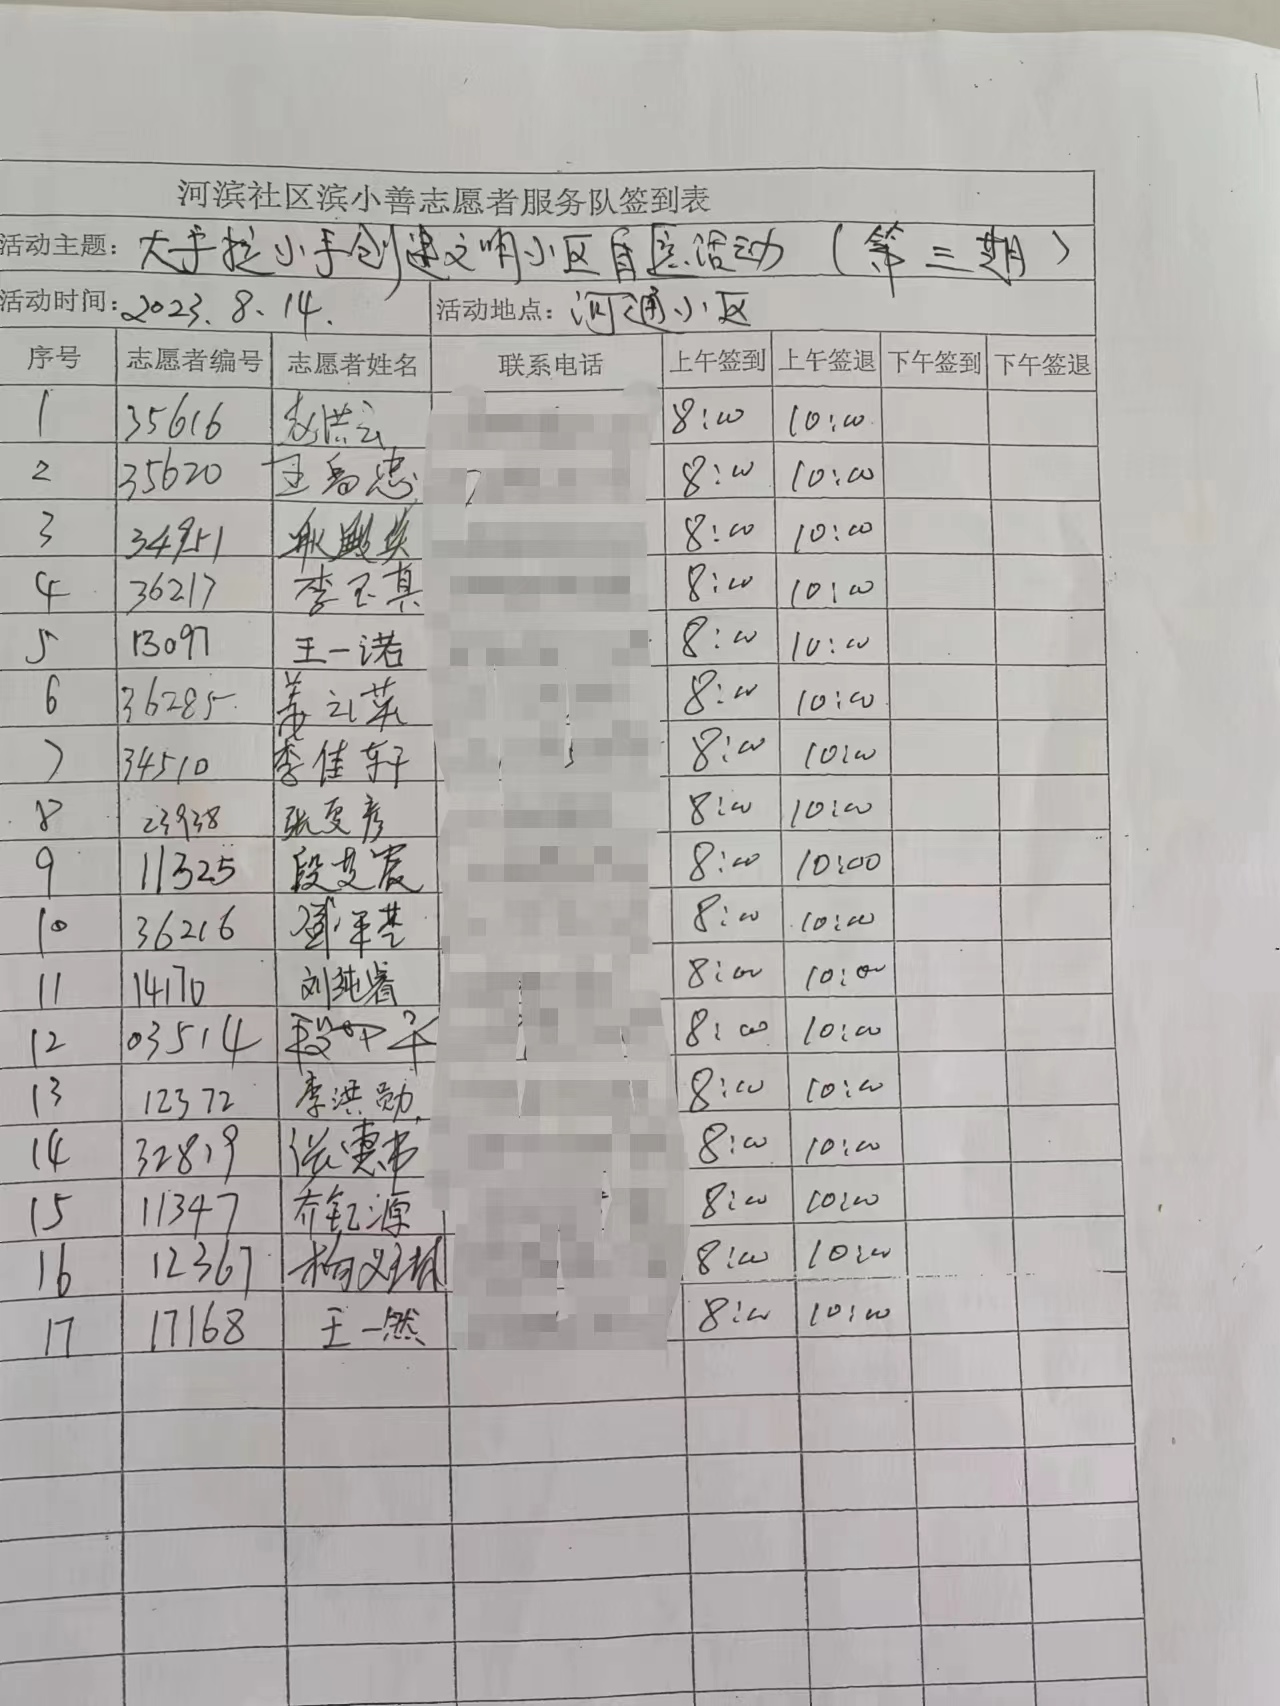 河滨社区滨小善志愿者服务队签到表
活动主题：大手拉小手创建文明小区自查活动（第三期）
活动时间：2023.8.14. 活动地点：河通小区
序号 志愿者编号 志愿者姓名 联系电话 上午签到 上午签退 下午签到 下午签退
1 35616 赵洪云 8:00 10:00
2 35620 8:00 10:00
3 34951 8:00 10:00
4 36217 李玉真 8:00 10:00
5 13097 王一诺 8:00 10:00
6 36285 姜云英 8:00 10:00
7 34510 李佳轩 8:00 10:00
8 23938 张夏彦 8:00 10:00
9 11325 段艾宸 8:00 10:00
10 36216 8:00 10:00
11 14170 刘纯睿 8:00 10:00
12 03514 8:00 10:00
13 12372 李洪勋 8:00 10:00
14 32819 8:00 10:00
15 11347 乔钇源 8:00 10:00
16 12367 8:00 10:00
17 17168 王一然 8:00 10:00